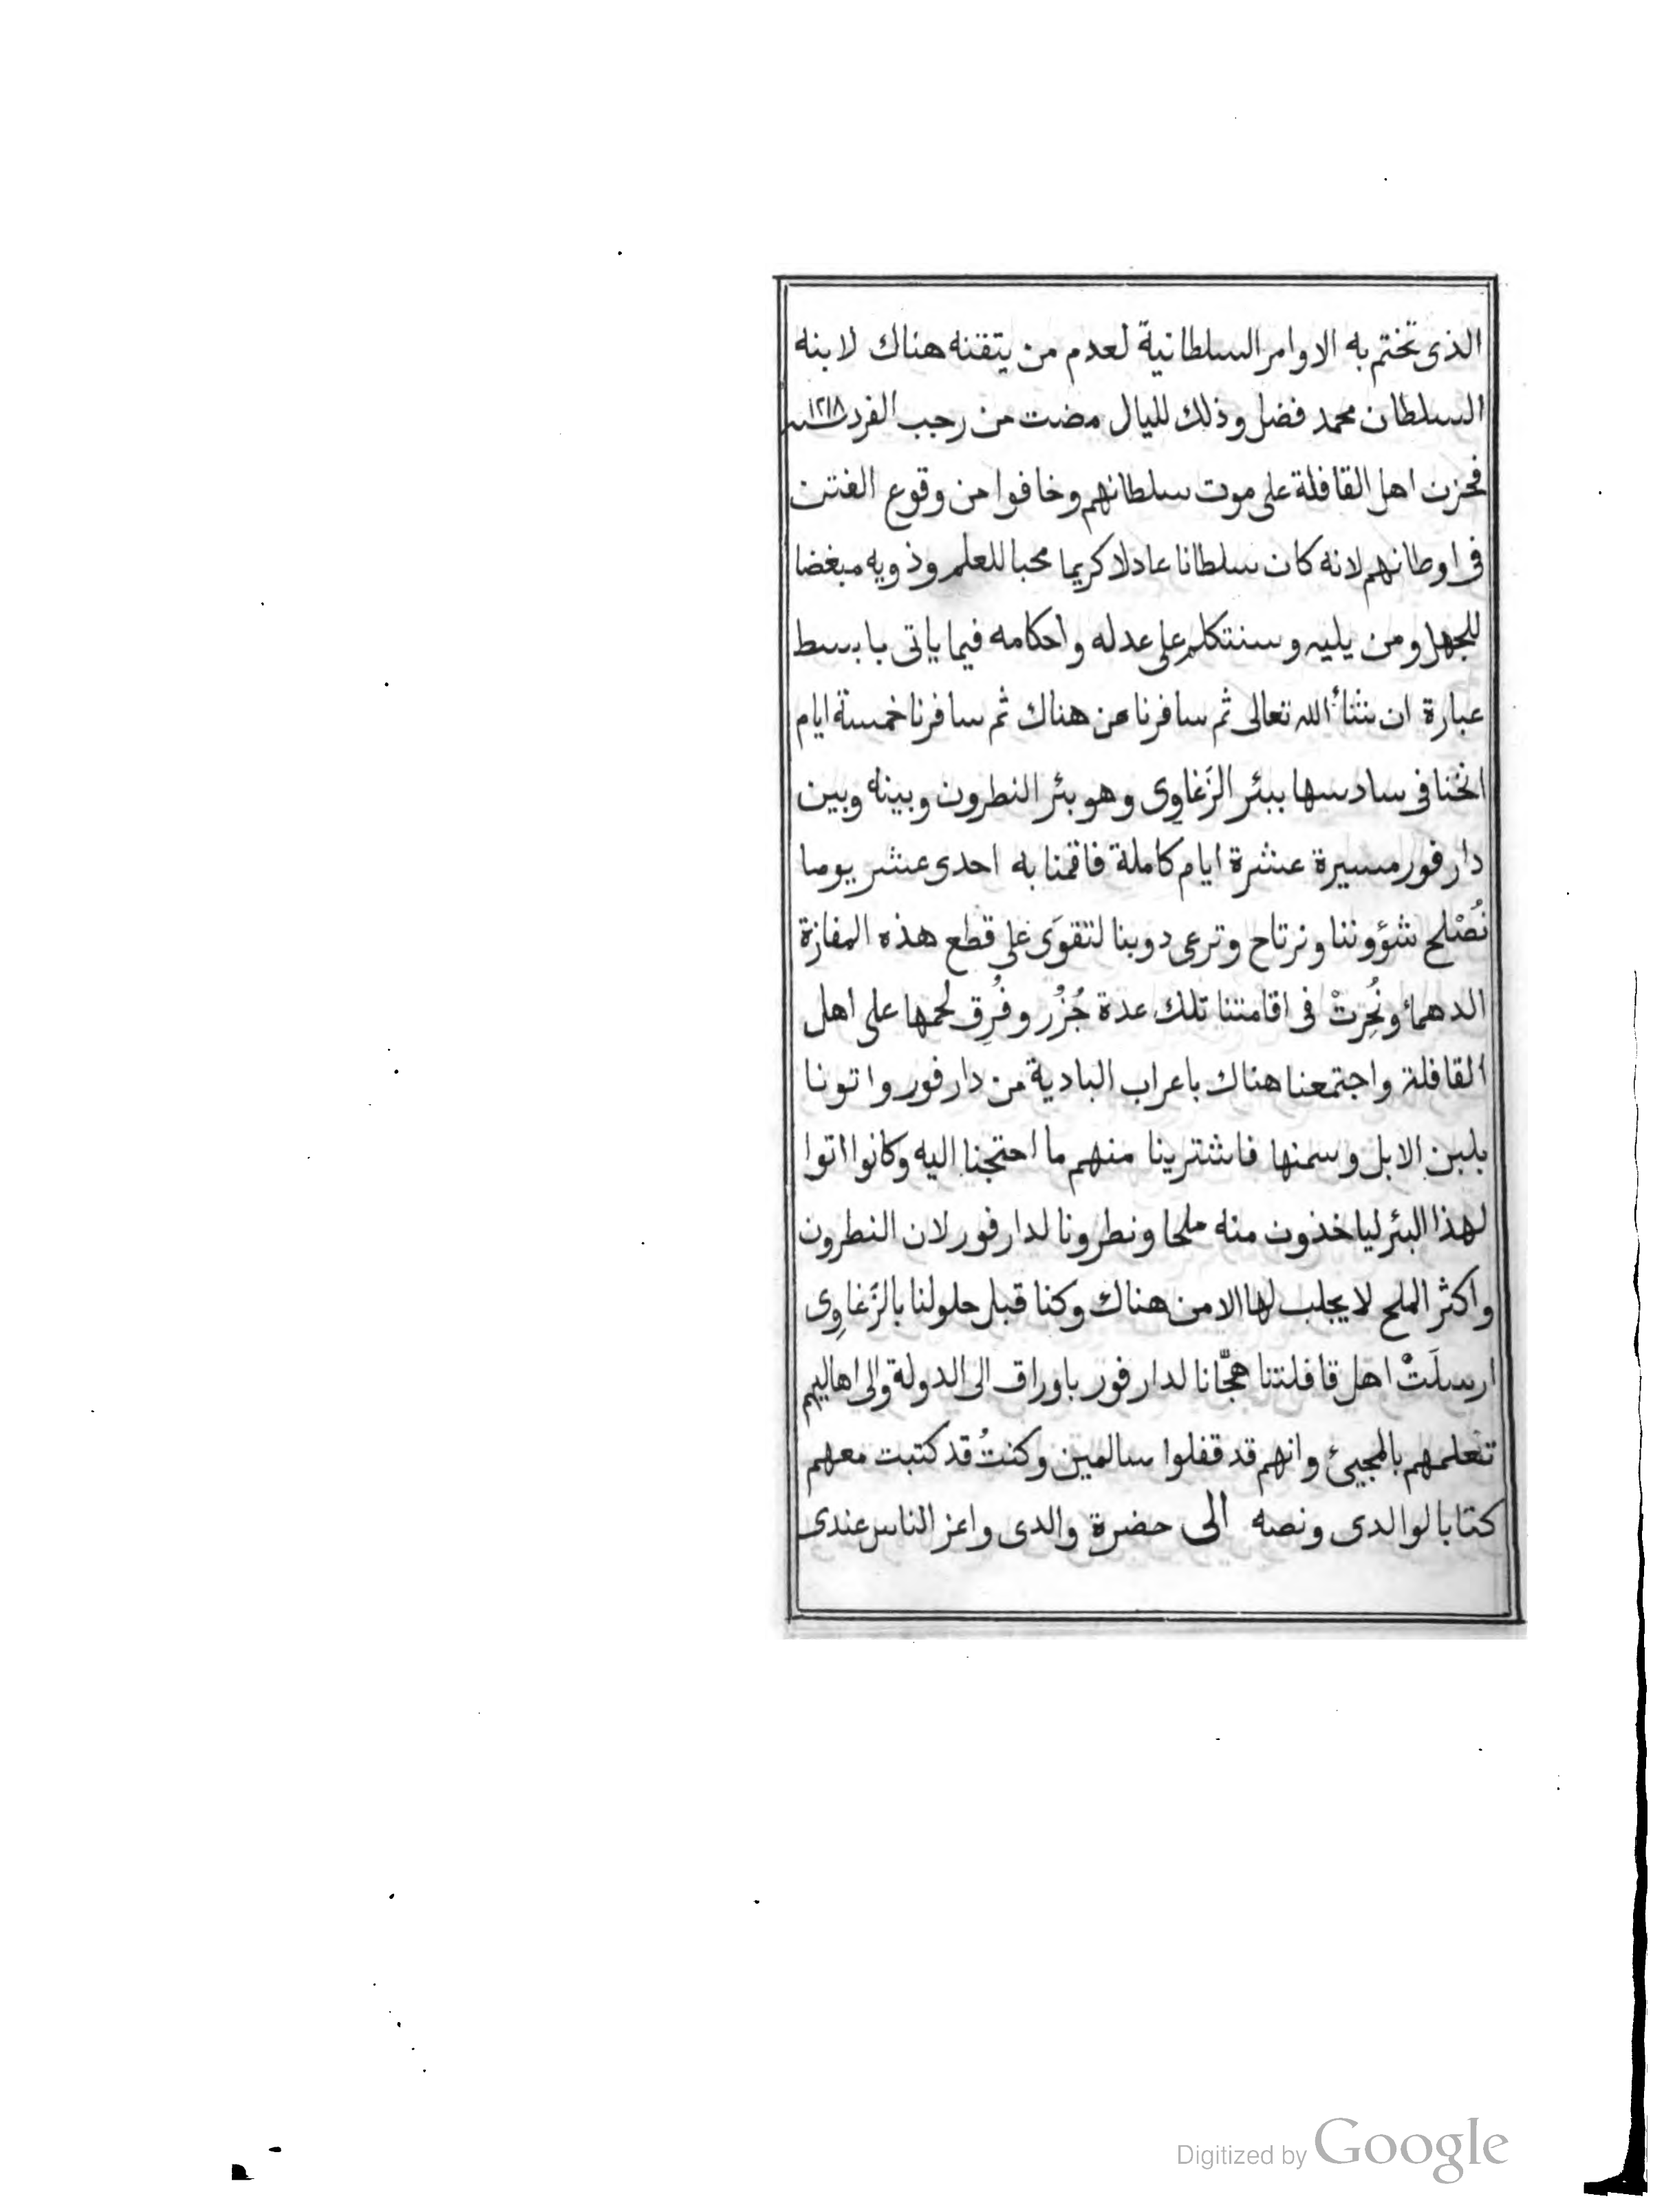 الذى تختم به الاوامر السلطانية لعدم من يتقنه هناك لابنه
السلطان محمد فضل وذلك لليال مضت من رجب الفرد سنة ١٢١٨
فحزن اهل القافلة على موت سلطانهم وخافوا من وقوع الفتن
فى اوطانهم لانه كان سلطانا عادلا كريما محبا للعلم وذويه مبغضا
للجهل ومن يليه وسنتكلم على عدله واحكامه فيما ياتى بابسط
عبارة ان شاء الله تعالى ثم سافرنا من هناك ثم سافرنا خمسة ايام
انخنا فى سادسها ببئر الزَغاوِى وهو بئر النطرون وبينه وبين
دارفور مسيرة عشرة ايام كاملة فاقمنا به احدى عشر يوما
نُصْلح شؤوننا ونرتاح وترعى دوبنا لتقوَى على قطع هذه المفازة
الدهماء ونُحِرتْ فى اقامتنا تلك عدة جُزُر وفُرِق لحمها على اهل
القافلة واجتمعنا هناك باعراب البادية من دارفور واتونا
بلبن الابل وسمنها فاشترينا منهم ما احتجنا اليه وكانوا اتوا
لهذا البئر لياخذون منه ملحا ونطرونا لدارفور لان النطرون
واكثر الملح لا يجلب لها الا من هناك وكنا قبل حلولنا بالزَغاوِى
ارسلَتْ اهل قافلتنا هجّانا لدارفور باوراق الى الدولة والى اهاليهم
تعلمهم بالمجيئ وانهم قد قفلوا سالمين وكنتُ قد كتبت معهم
كتابا لوالدى ونصه الى حضرة والدى واعز الناس عندى
Digitized by Google